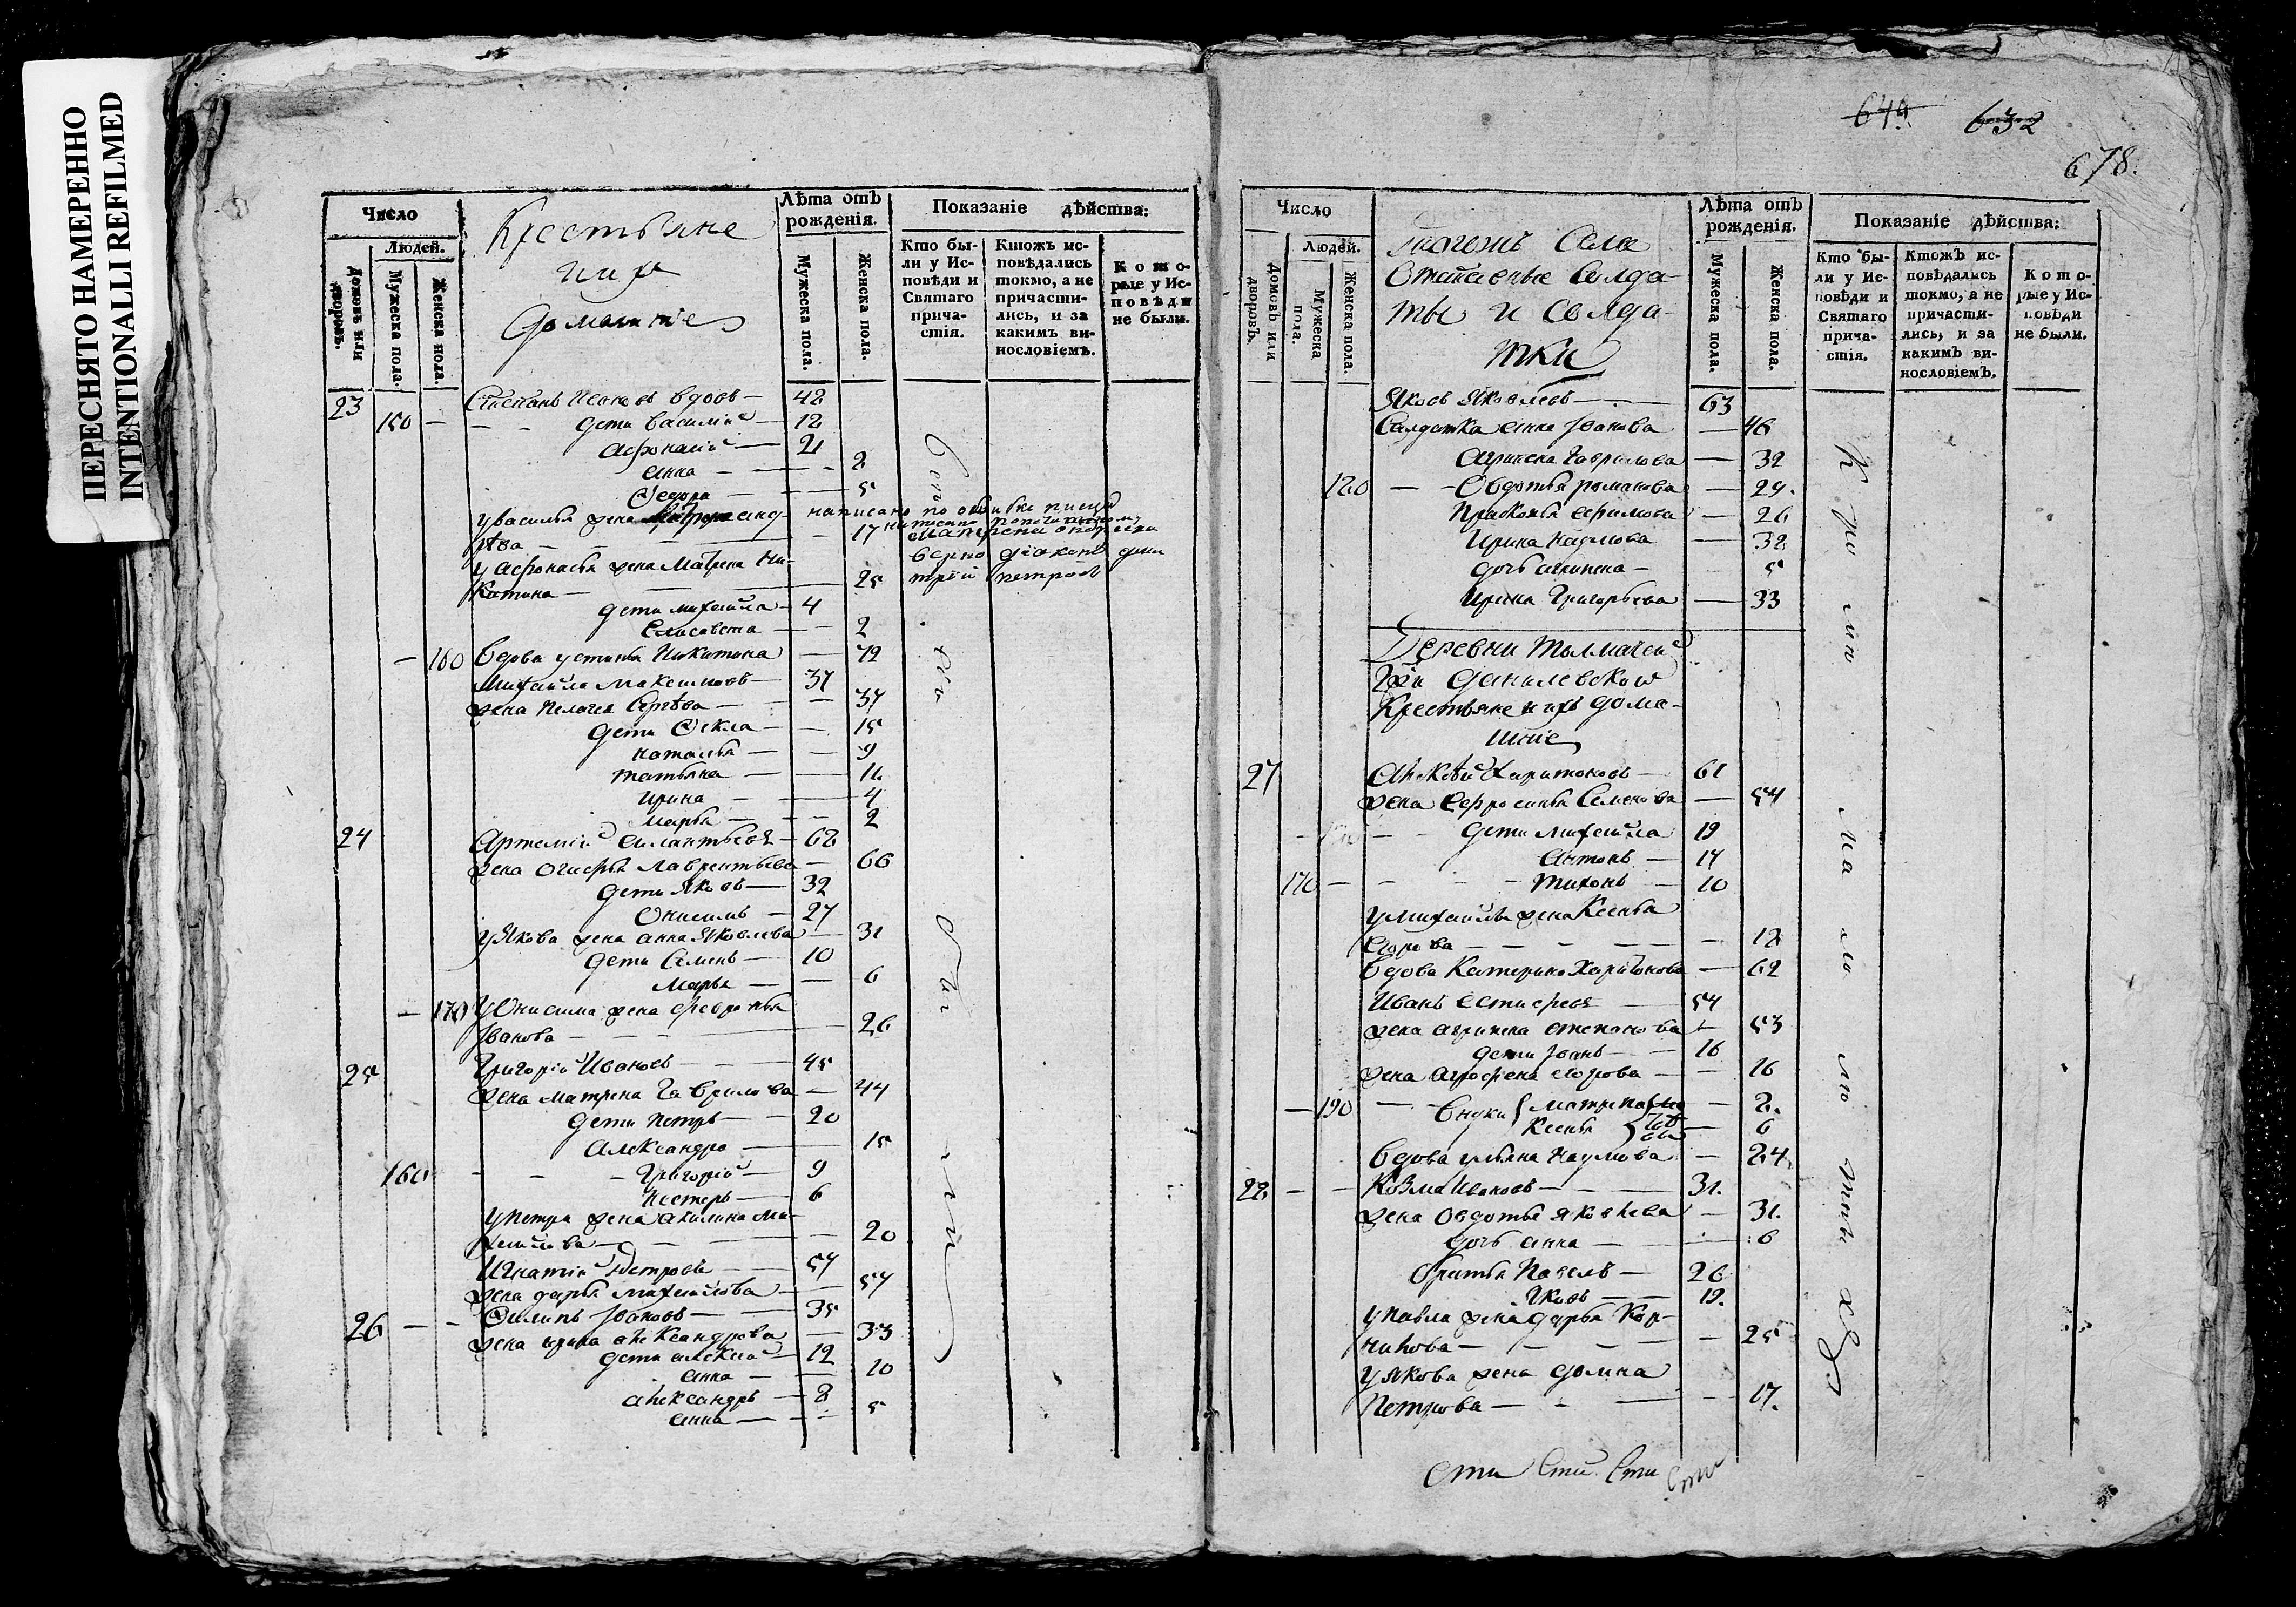 ПЕРЕСНЯТО НАМЕРЕННО
INTENTIONALLI REFILMED
Число
Людей.
Домовъ или дворовъ.
Мужеска пола.
Женска пола.
Крестьяне
ихъ
домашніе
Лѣта отъ рожденія.
Мужеска пола.
Женска пола.
Показаніе дѣйства:
Кто были у Исповѣди и Святаго причастія.
Ктожъ исповѣдались токмо, а не причастились, и за какимъ винословіемъ.
Которые у Исповѣди не были.
23 Степанъ вдовъ — 42
150 — — — дети Василій — 12
Афонасій — 21
Анна — — — 2
Федора — — — 5
у Василья жена написано по ошибке писца
17
у Афонасья жена Матрена Ни-
китина — — 25
верно діаконъ Дми
трій Петровъ
дети Михайла — 4
Елисавета — — 2
— 160 Вдова Устинья Никитина — 72
Михайла Максимовъ — 37
жена Пелагея Сергѣва — — 37
дети Фекла — — 15
Наталья — — 9
Татьяна — — 11
Ирина — — 4
Марья — — 2
24 Артемій Силантьевъ — 62
жена Лаврентьева — 66
дети Яковъ — 32
Онисимъ — 27
у Якова жена Анна Яковлева — 31
дети Семенъ — 10
Марья — — 6
— 170 У Онисима жена Февронья
Іванова — — — 26
25 Григорій Ивановъ — — 45
жена Матрена Гаврилова — 44
дети Петръ — 20
Александра — 15
160 — — — Григорій — 9
Нестеръ — 6
у Петра жена Акилина Ми-
хайлова — — — 20
Игнатій Петровъ — — 57
жена Дарья Михайлова — — 57
26 — — Филипъ Івановъ — — 35
жена Ирина Александрова — 33
дети Алексій — 12
Анна — — 10
Александръ — 8
Анна — — 5
674.
632
678.
Число
Людей.
Домовъ или дворовъ.
Мужеска пола.
Женска пола.
тогожъ села
Отставные Солда-
ты и солда-
тки
Лѣта отъ рожденія.
Мужеска пола.
Женска пола.
Показаніе дѣйства:
Кто были у Исповѣди и Святаго причастія.
Ктожъ исповѣдались токмо, а не причастились, и за какимъ винословіемъ.
Которые у Исповѣди не были.
Яковъ Яковлевъ — — 63
Салдатка Анна Іванова — 46
Агрипена Гаврилова — 32
180 — — Овдотья Романова — 29.
Прасковья Ефимова — 26
Ирина Наумова — 32
дочь Агрипена — 5
Ирина Григорьева — 33
Деревни Толмачей
Данилевской
Крестьяне и ихъ дома-
шніе
27 Алексѣй Харитоновъ — 61
жена Ефросинья Семенова — 54
дети Михайла 19
Антонъ — 17
170 — — — — Тихонъ — 10
у Михайлы жена Ксенья
Егорова — — — — 18
Вдова Катерина Харитонова — 62
Иванъ Естифеевъ — 54
жена Агрипена Степанова — 53
дети Іванъ — — 16
жена Агрофена Егорова — — 16
— 190 — — Внуки Матрена — 2.
Ксенья — 6
Вдова Ульяна Наумова — 24.
28 — — Козма Ивановъ — — 31.
жена Овдотья Яковлева — 31.
дочь Анна — — 6
братья Павелъ — 26
Яковъ — 19.
у Павла жена Дарья Кор-
нилова — — — — 25
у Якова жена Домна
Петрова — — — — 17.